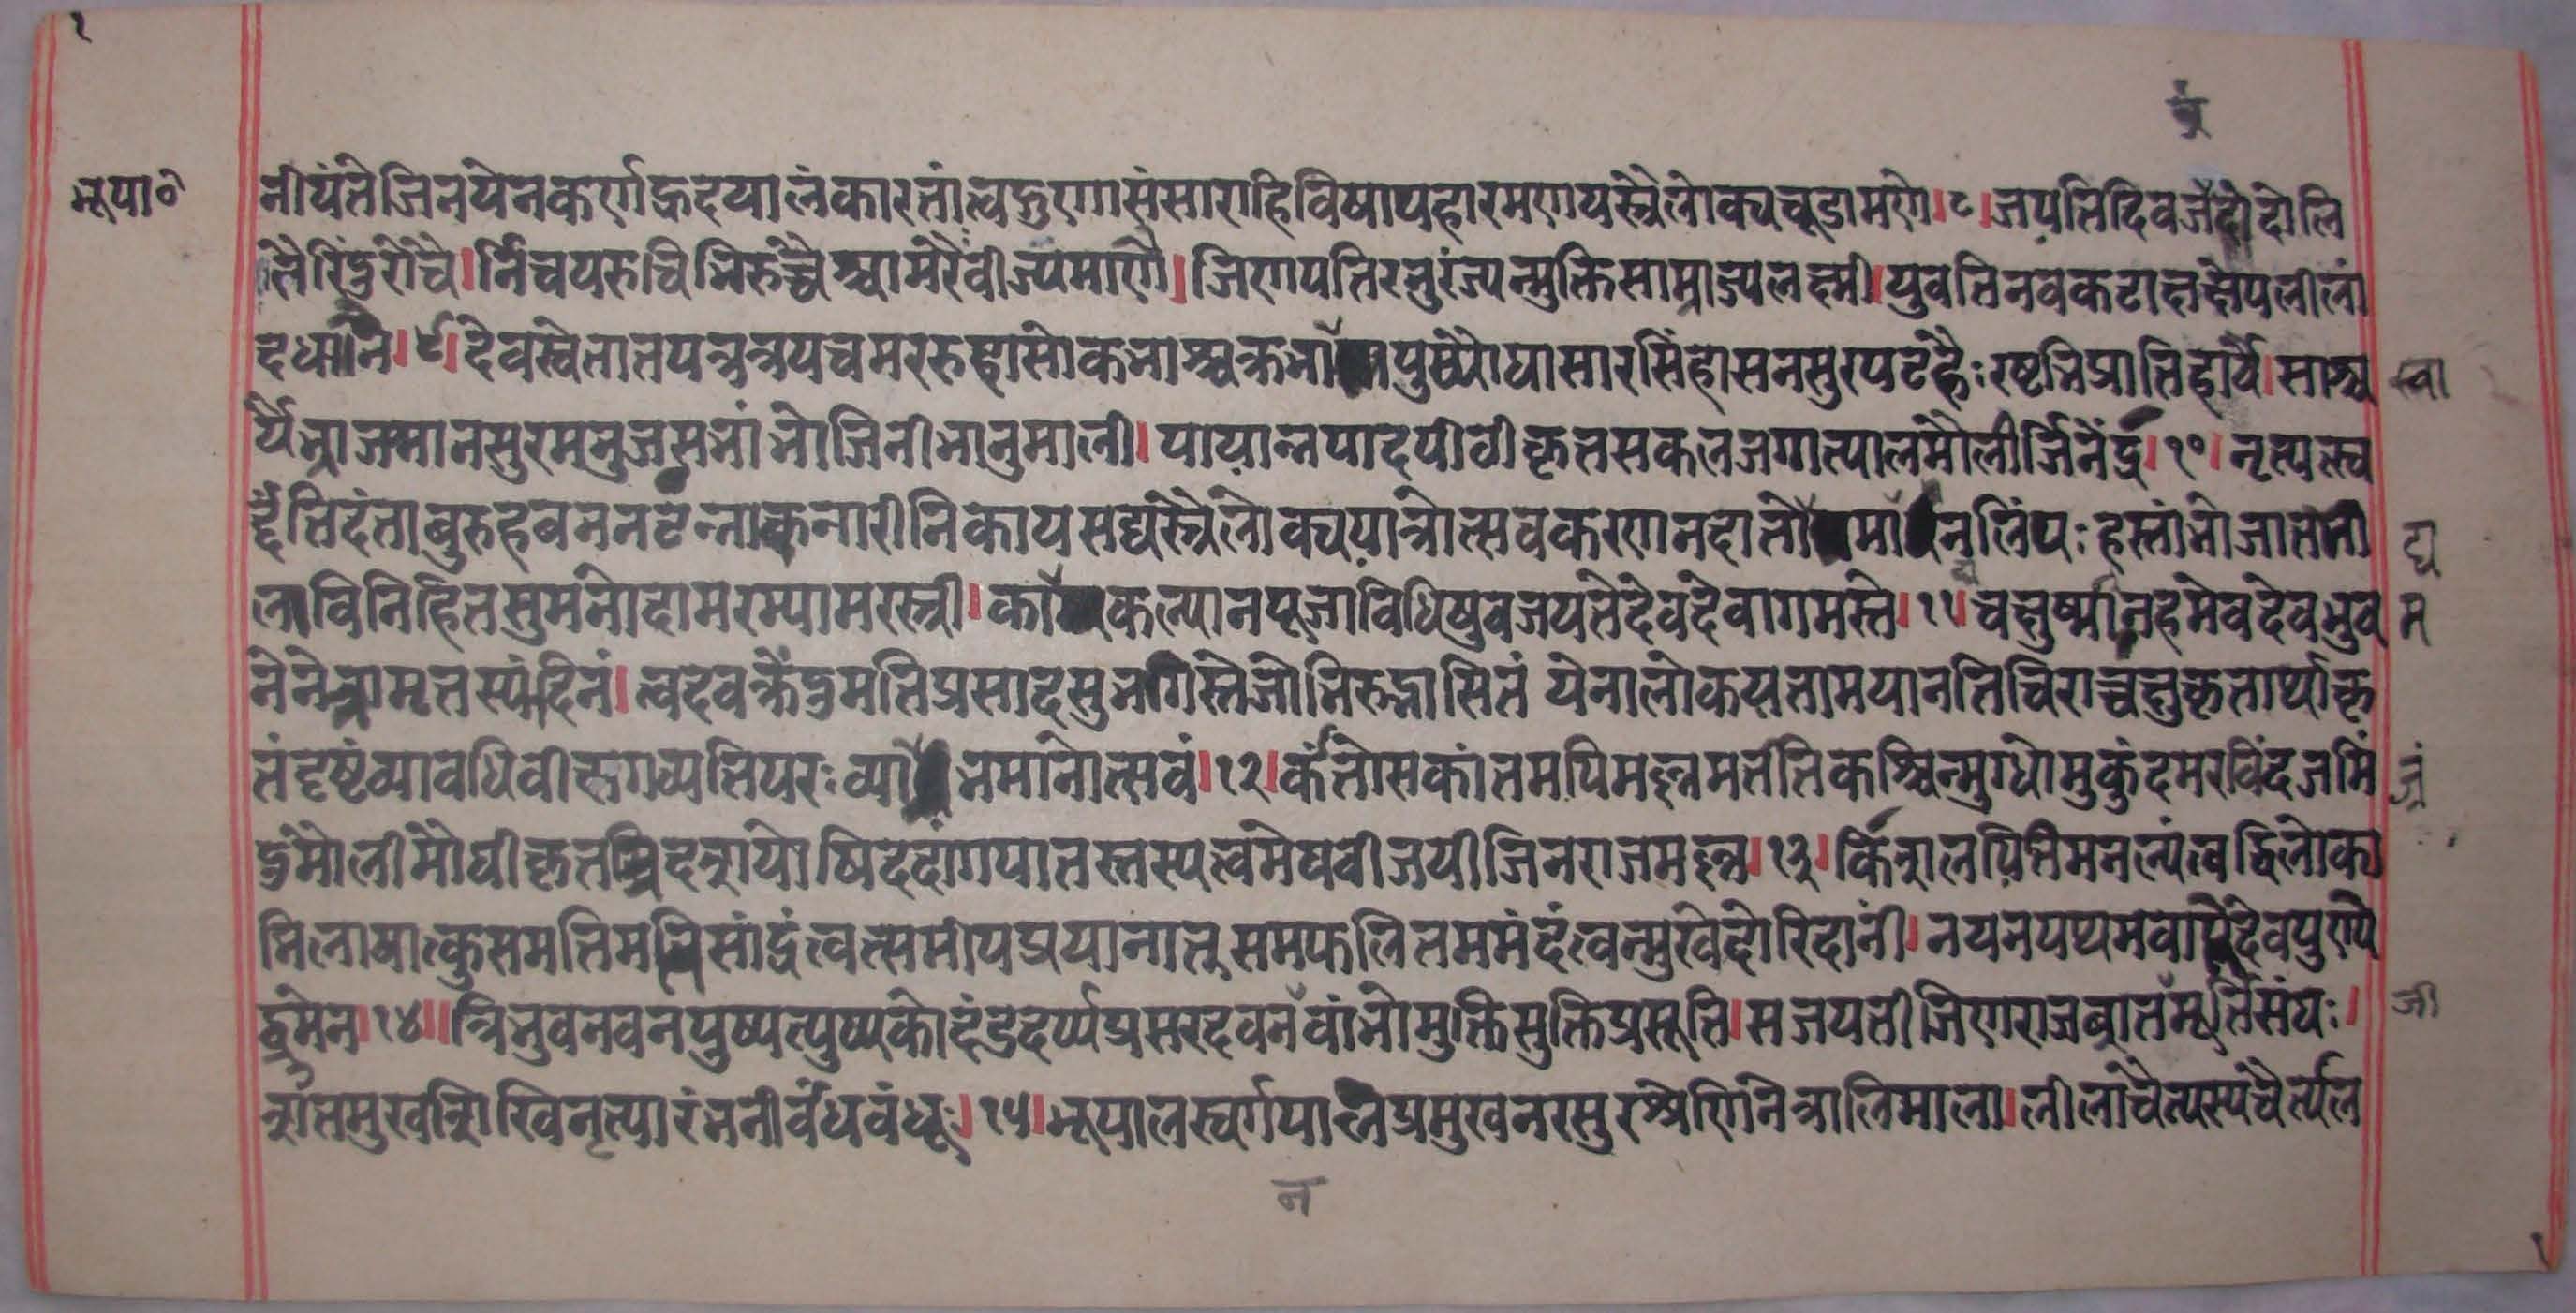 १
र्वुं
भूपा०
नीयंते जिन येन कर्णहृदयालंकारतां त्वद्गुणा संसाराहिविषापहारमणयस्त्रैलोक्यचूडामणे।८। जयति दिवजैदोदोलि
तैरिंदुरोचै। र्निचयरुचिभिरुच्चैश्चामरैर्वीज्यमाणै। जिणपतिरनुरंज्यन्मुक्तिसाम्राज्यलक्ष्मी। युवतिनवकटाक्षक्षेपलीलां
दधानै।९। देवस्वेतातपत्रत्रयचमररुहासोकभाश्चक्रभा पुष्पौघासारसिंहासनसुरपटहैः रष्टभिप्रातिहार्यै। साश्च
र्यै भ्राजमान सुरमनुजसभांभोजिनीभानुमाली। पायान्नपादपीठीकृतसकलजगात्पालमौलीर्जिनेंद्र।१०। नृत्यत्स्व
र्द्दंतिदंताबुरुहवननटन्नाकनारीनिकाय सद्यस्त्रैलोक्ययात्रोत्सवकरणनदातो मा न्नलिंपः हस्तांभोजातली
लाविनिहितसुमनोदामरम्यामरस्त्री। का कल्यानपूजाविधिषु वजयते देव देवागमस्ते।११। चक्षुष्मानहमेव देव भुव
ने नेत्रामृतस्यंदिनं। त्वदवक्त्रेंदुमतिप्रसादसुभगिस्तेजोभिरुद्भासितं येनालोकयतामयानतिचिराच्चक्षुकृतार्थीकृ
तं दृष्टंव्यावधिवीक्षणव्यतिपरः व्या भमानोत्सवं।१२। कंतोसकांतमपि मल्लमतेति कश्चिन्मुग्धो मुकुंदमरविंदजमिं
दुमौली मोघीकृतत्रिदशयोषिददांगपातस्तस्य त्वमेष वीजयी जिनराजमल्ल।१३। किशलयितिमनल्पं त्वद्विलोका
भिलाषात्कुसमतिमतिसांद्रं त्वत्समीपप्रयानात् समफलितममंदं त्वन्मुखेदोरिदानीं। नयनपथमवाप्तेदेव पुण्य
द्रुमेन।१४।। त्रिभुवनवनपुष्प्यत्पुष्पकोदंडदर्प्पप्रसरदवनवांभोमुक्तिसुक्तिप्रसूति। स जयतीजिणराजव्रातमूर्तिसंघः।
शतमुखशिखिनृत्यारंभनीर्वंधवंधूः।१५। भूपालस्वर्गपालप्रमुखनरसुरश्रेणिनेत्रालिमाला। लीलाचैत्यस्यचैत्यल
स्वा
द्य
म
भं
जी
न